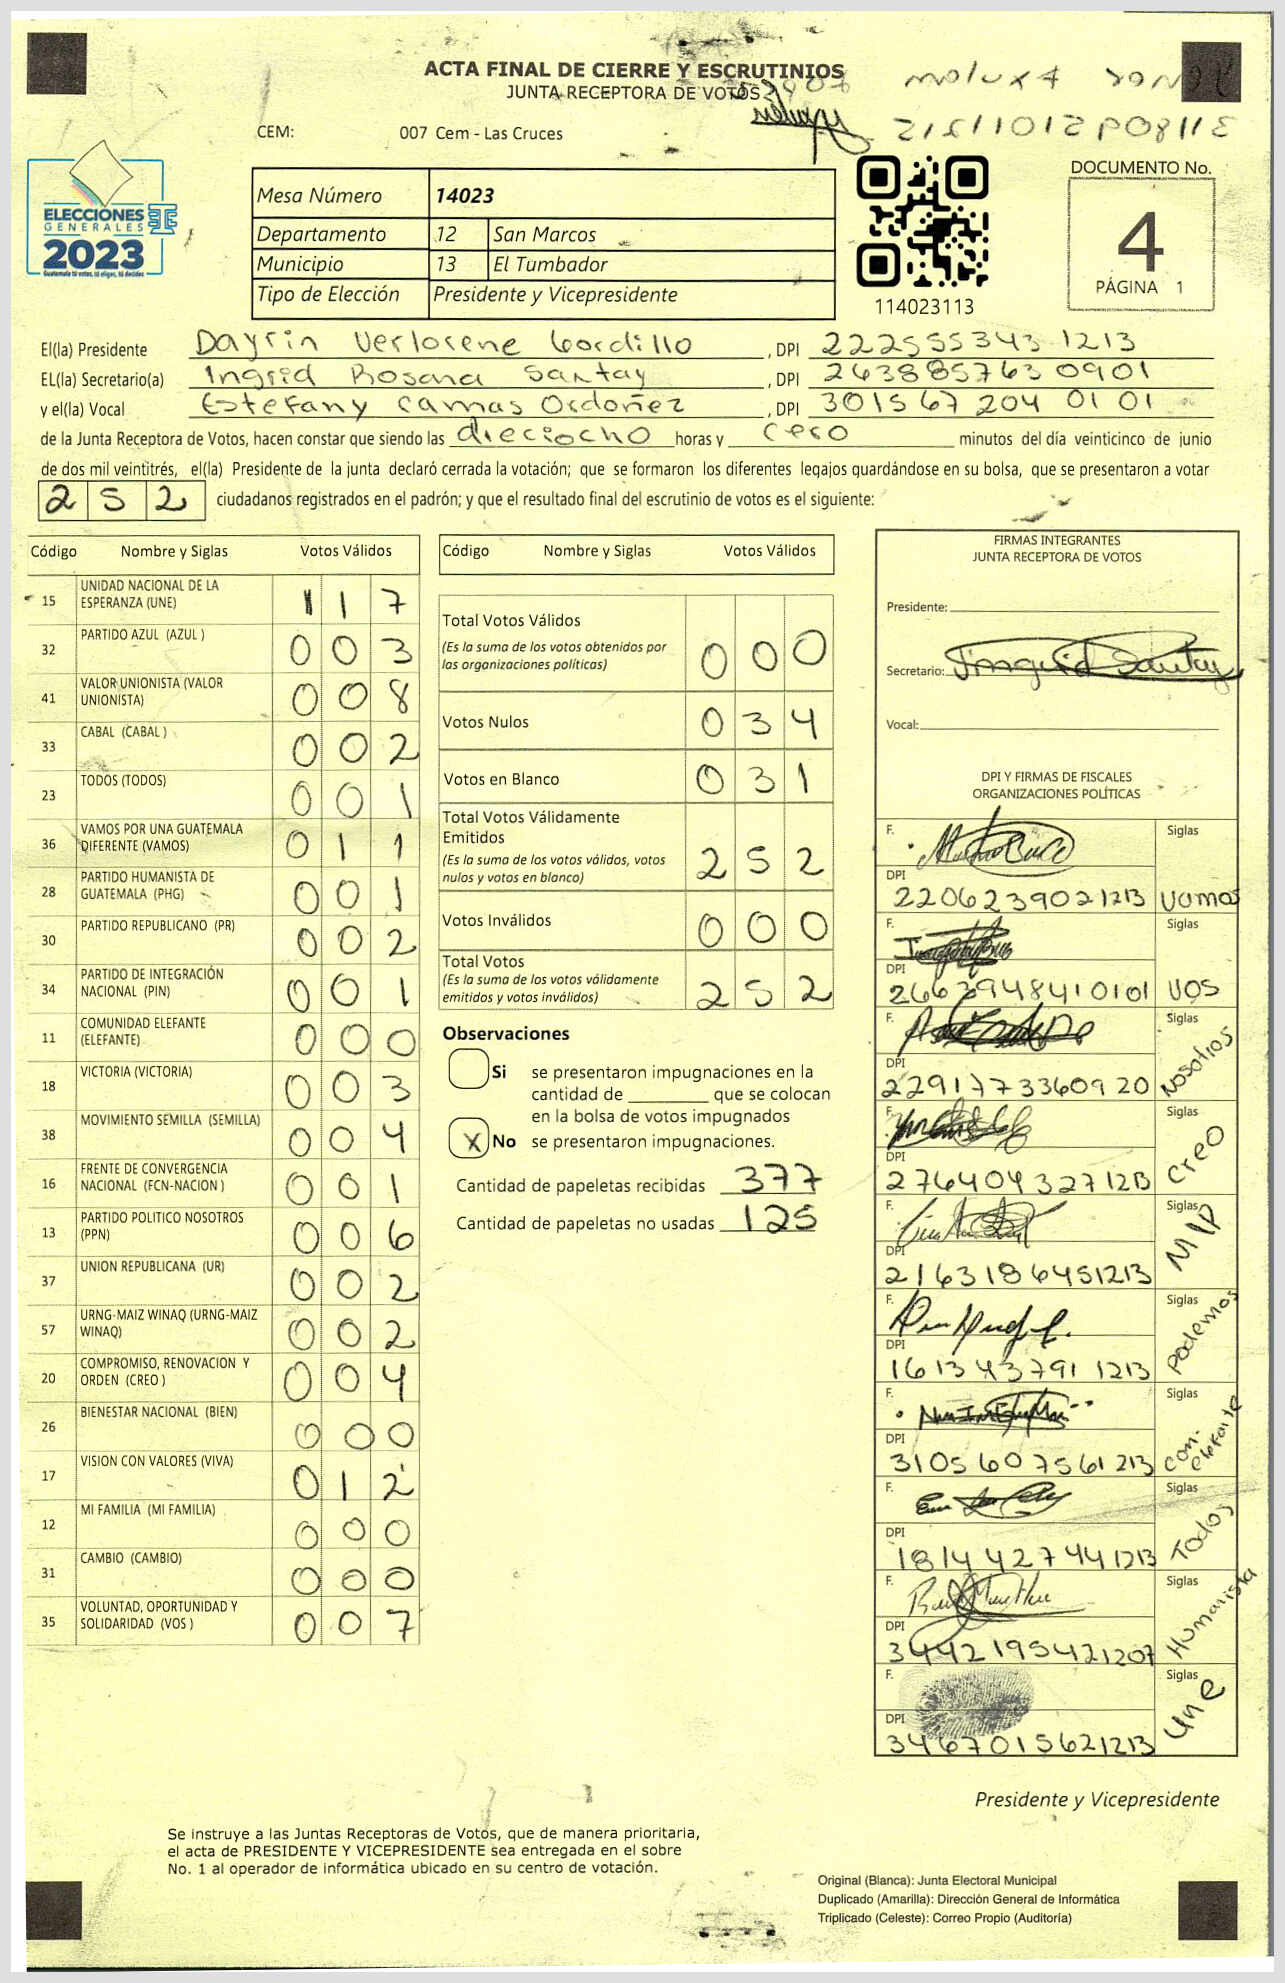 ACTA FINAL DE CIERRE Y ESCRUTINIOS
JUNTA RECEPTORA DE VOTOS
CEM: 007 Cem - Las Cruces
ELECCIONES
GENERALES
2023
Guatemala tú votas, tú eliges, tú decides
Mesa Número 14023
Departamento 12 San Marcos
Municipio 13 El Tumbador
Tipo de Elección Presidente y Vicepresidente
114023113
DOCUMENTO No.
4
PÁGINA 1
El(la) Presidente Dayrin Verlorene Gordillo, DPI 222555343 1213
EL(la) Secretario(a) Ingrid Rosana Santay, DPI 263885763 0901
y el(la) Vocal Estefany Camas Ordoñez, DPI 301567204 0101
de la Junta Receptora de Votos, hacen constar que siendo las dieciocho horas y cero minutos del día veinticinco de junio
de dos mil veintitrés, el(la) Presidente de la junta declaró cerrada la votación; que se formaron los diferentes legajos guardándose en su bolsa, que se presentaron a votar
252 ciudadanos registrados en el padrón; y que el resultado final del escrutinio de votos es el siguiente:
Código Nombre y Siglas Votos Válidos
15 UNIDAD NACIONAL DE LA ESPERANZA (UNE) 117
32 PARTIDO AZUL (AZUL ) 003
41 VALOR UNIONISTA (VALOR UNIONISTA) 008
33 CABAL (CABAL ) 002
23 TODOS (TODOS) 001
36 VAMOS POR UNA GUATEMALA DIFERENTE (VAMOS) 011
28 PARTIDO HUMANISTA DE GUATEMALA (PHG) 001
30 PARTIDO REPUBLICANO (PR) 002
34 PARTIDO DE INTEGRACIÓN NACIONAL (PIN) 001
11 COMUNIDAD ELEFANTE (ELEFANTE) 000
18 VICTORIA (VICTORIA) 003
38 MOVIMIENTO SEMILLA (SEMILLA) 004
16 FRENTE DE CONVERGENCIA NACIONAL (FCN-NACION ) 001
13 PARTIDO POLITICO NOSOTROS (PPN) 006
37 UNION REPUBLICANA (UR) 002
57 URNG-MAIZ WINAQ (URNG-MAIZ WINAQ) 002
20 COMPROMISO, RENOVACION Y ORDEN (CREO ) 004
26 BIENESTAR NACIONAL (BIEN) 000
17 VISION CON VALORES (VIVA) 012
12 MI FAMILIA (MI FAMILIA) 000
31 CAMBIO (CAMBIO) 000
35 VOLUNTAD, OPORTUNIDAD Y SOLIDARIDAD (VOS ) 007
Código Nombre y Siglas Votos Válidos
Total Votos Válidos 000
(Es la suma de los votos obtenidos por
las organizaciones políticas)
Votos Nulos 034
Votos en Blanco 031
Total Votos Válidamente
Emitidos 252
(Es la suma de los votos válidos, votos
nulos y votos en blanco)
Votos Inválidos 000
Total Votos 252
(Es la suma de los votos válidamente
emitidos y votos inválidos)
Observaciones
Si se presentaron impugnaciones en la
cantidad de ________ que se colocan
en la bolsa de votos impugnados
X No se presentaron impugnaciones.
Cantidad de papeletas recibidas 377
Cantidad de papeletas no usadas 125
FIRMAS INTEGRANTES
JUNTA RECEPTORA DE VOTOS
Presidente:
Secretario: Ingrid Santay
Vocal:
DPI Y FIRMAS DE FISCALES
ORGANIZACIONES POLÍTICAS
F. Siglas
DPI 220623902 1213 Vamos
F. Siglas
DPI 2663948410101 VOS
F. Siglas
DPI 2291773360920 Nosotros
F. Siglas
DPI 2764043271213 Creo
F. Siglas
DPI 2163186451213 MLP
F. Siglas
DPI 161343791 1213 Podemos
F. Siglas
DPI 3105607561213 Con-elefante
F. Siglas
DPI 1814427441213 Todos
F. Siglas
DPI 3442195421207 Humanista
F. Siglas
DPI 3467015621213 Une
Presidente y Vicepresidente
Se instruye a las Juntas Receptoras de Votos, que de manera prioritaria,
el acta de PRESIDENTE Y VICEPRESIDENTE sea entregada en el sobre
No. 1 al operador de informática ubicado en su centro de votación.
Original (Blanca): Junta Electoral Municipal
Duplicado (Amarilla): Dirección General de Informática
Triplicado (Celeste): Correo Propio (Auditoría)